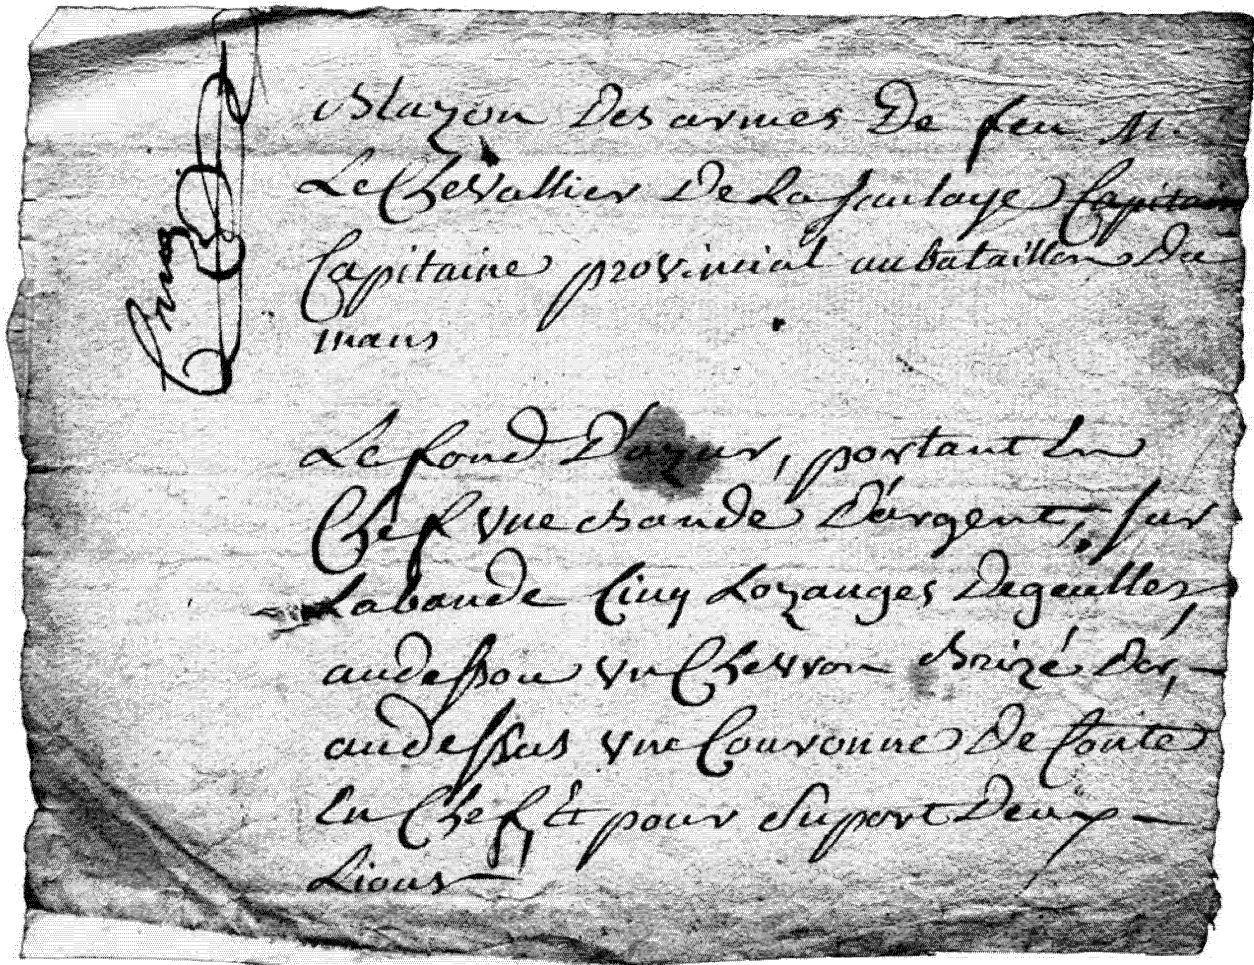 Blazon Des armes De feu M.
Le Chevallier De La Saulaye Capitain
Capitaine provincial au bataillon Du
mans
Le fond D'azur, portant En
Chef Vne bande D'argent, sur
La bande Cinq Lozanges Degeulles,
audessou Vn Chevron Brizé Dor,
audessus Vne Couronne De Conte
En Chef Et pour Suport Deux
Lions